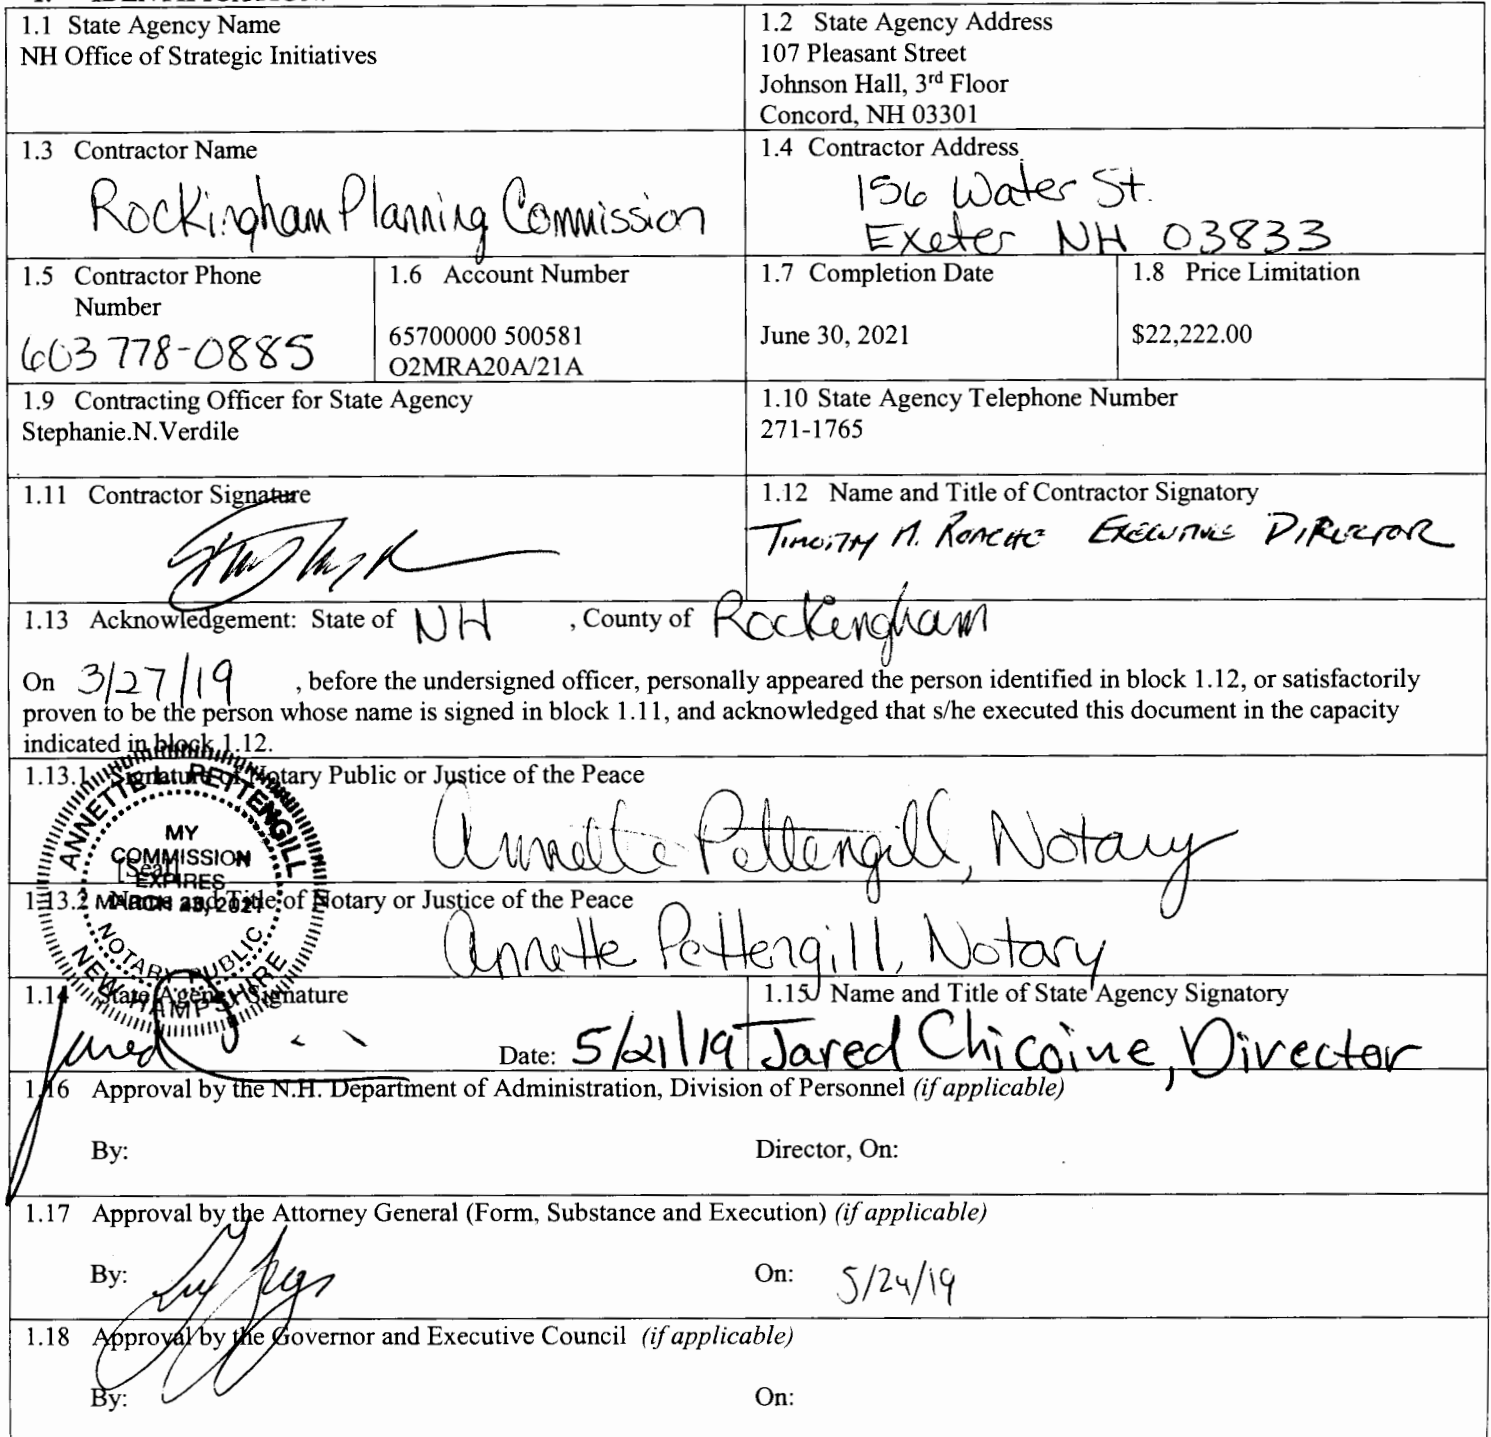 1.1 State Agency Name
NH Office of Strategic Initiatives
1.2 State Agency Address
107 Pleasant Street
Johnson Hall, 3rd Floor
Concord, NH 03301
1.3 Contractor Name
Rockingham Planning Commission
1.4 Contractor Address
156 Water St.
Exeter NH 03833
1.5 Contractor Phone
Number
603 778-0885
1.6 Account Number
65700000 500581
O2MRA20A/21A
1.7 Completion Date
June 30, 2021
1.8 Price Limitation
$22,222.00
1.9 Contracting Officer for State Agency
Stephanie.N.Verdile
1.10 State Agency Telephone Number
271-1765
1.11 Contractor Signature
1.12 Name and Title of Contractor Signatory
Timothy M. Roache Executive Director
1.13 Acknowledgement: State of NH , County of Rockingham
On 3/27/19 , before the undersigned officer, personally appeared the person identified in block 1.12, or satisfactorily
proven to be the person whose name is signed in block 1.11, and acknowledged that s/he executed this document in the capacity
indicated in block 1.12.
1.13.1 Signature of Notary Public or Justice of the Peace
Annette Pettengill, Notary
[Seal]
ANNETTE L. PETTENGILL
MY
COMMISSION
EXPIRES
MARCH 23, 2021
NOTARY PUBLIC
NEW HAMPSHIRE
1.13.2 Name and Title of Notary or Justice of the Peace
Annette Pettengill, Notary
1.14 State Agency Signature
Jared
Date: 5/21/19
1.15 Name and Title of State Agency Signatory
Jared Chicoine, Director
1.16 Approval by the N.H. Department of Administration, Division of Personnel (if applicable)
By:
Director, On:
1.17 Approval by the Attorney General (Form, Substance and Execution) (if applicable)
By:
On: 5/24/19
1.18 Approval by the Governor and Executive Council (if applicable)
By:
On: